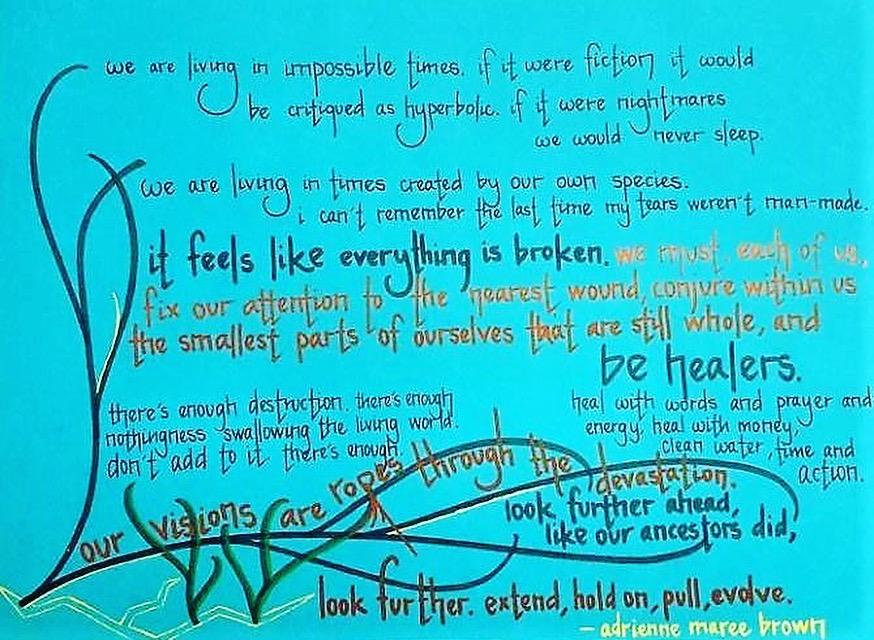 we are living in impossible times. if it were fiction it would
be critiqued as hyperbolic. if it were nightmares
we would never sleep.
we are living in times created by our own species.
i can't remember the last time my tears weren't man-made.
it feels like everything is broken. we must, each of us,
fix our attention to the nearest wound, conjure within us
the smallest parts of ourselves that are still whole, and
be healers.
there's enough destruction. there's enough
nothingness swallowing the living world.
don't add to it. there's enough.
heal with words and prayer and
energy. heal with money,
clean water, time and
action.
our visions are ropes through the devastation.
look further ahead,
like our ancestors did,
look further. extend, hold on, pull, evolve.
- adrienne maree brown